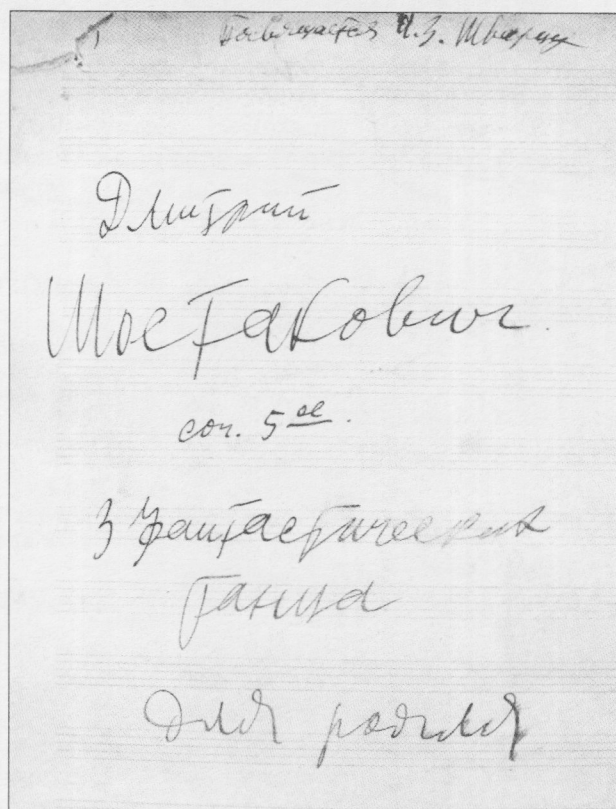 Посвящается И.З. Шварцу
Дмитрий
Шостакович.
соч. 5ое.
3 фантастических
танца
для рояля